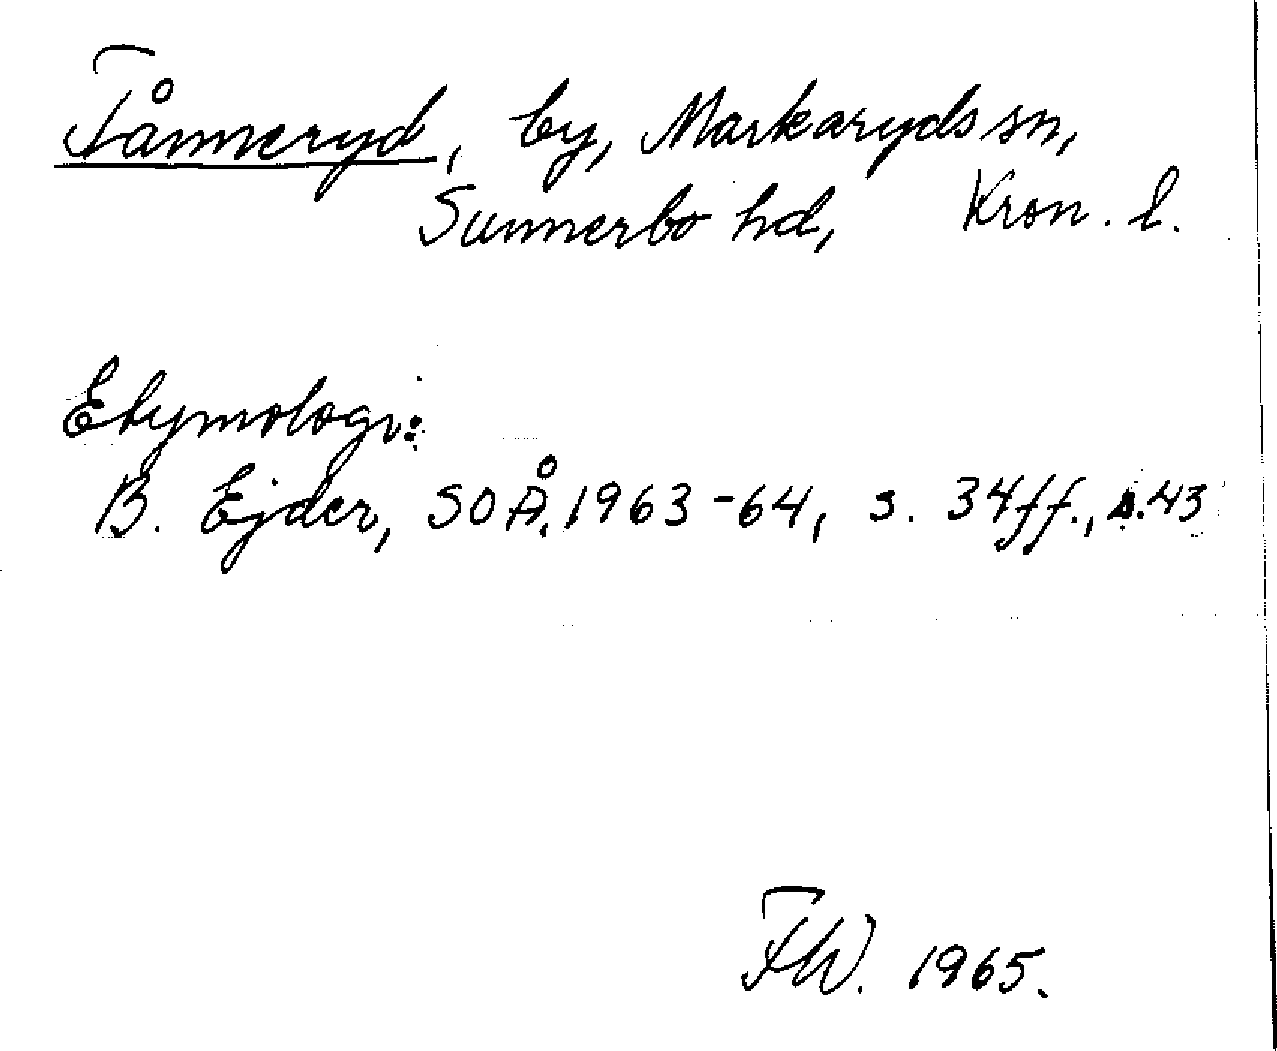 Tånneryd, by, Markaryds sn,
Sunnerbo hd, Kron. l.
Etymologi:
B. Ejder, SOÅ. 1963-64, s. 34ff., s. 43
FW. 1965.